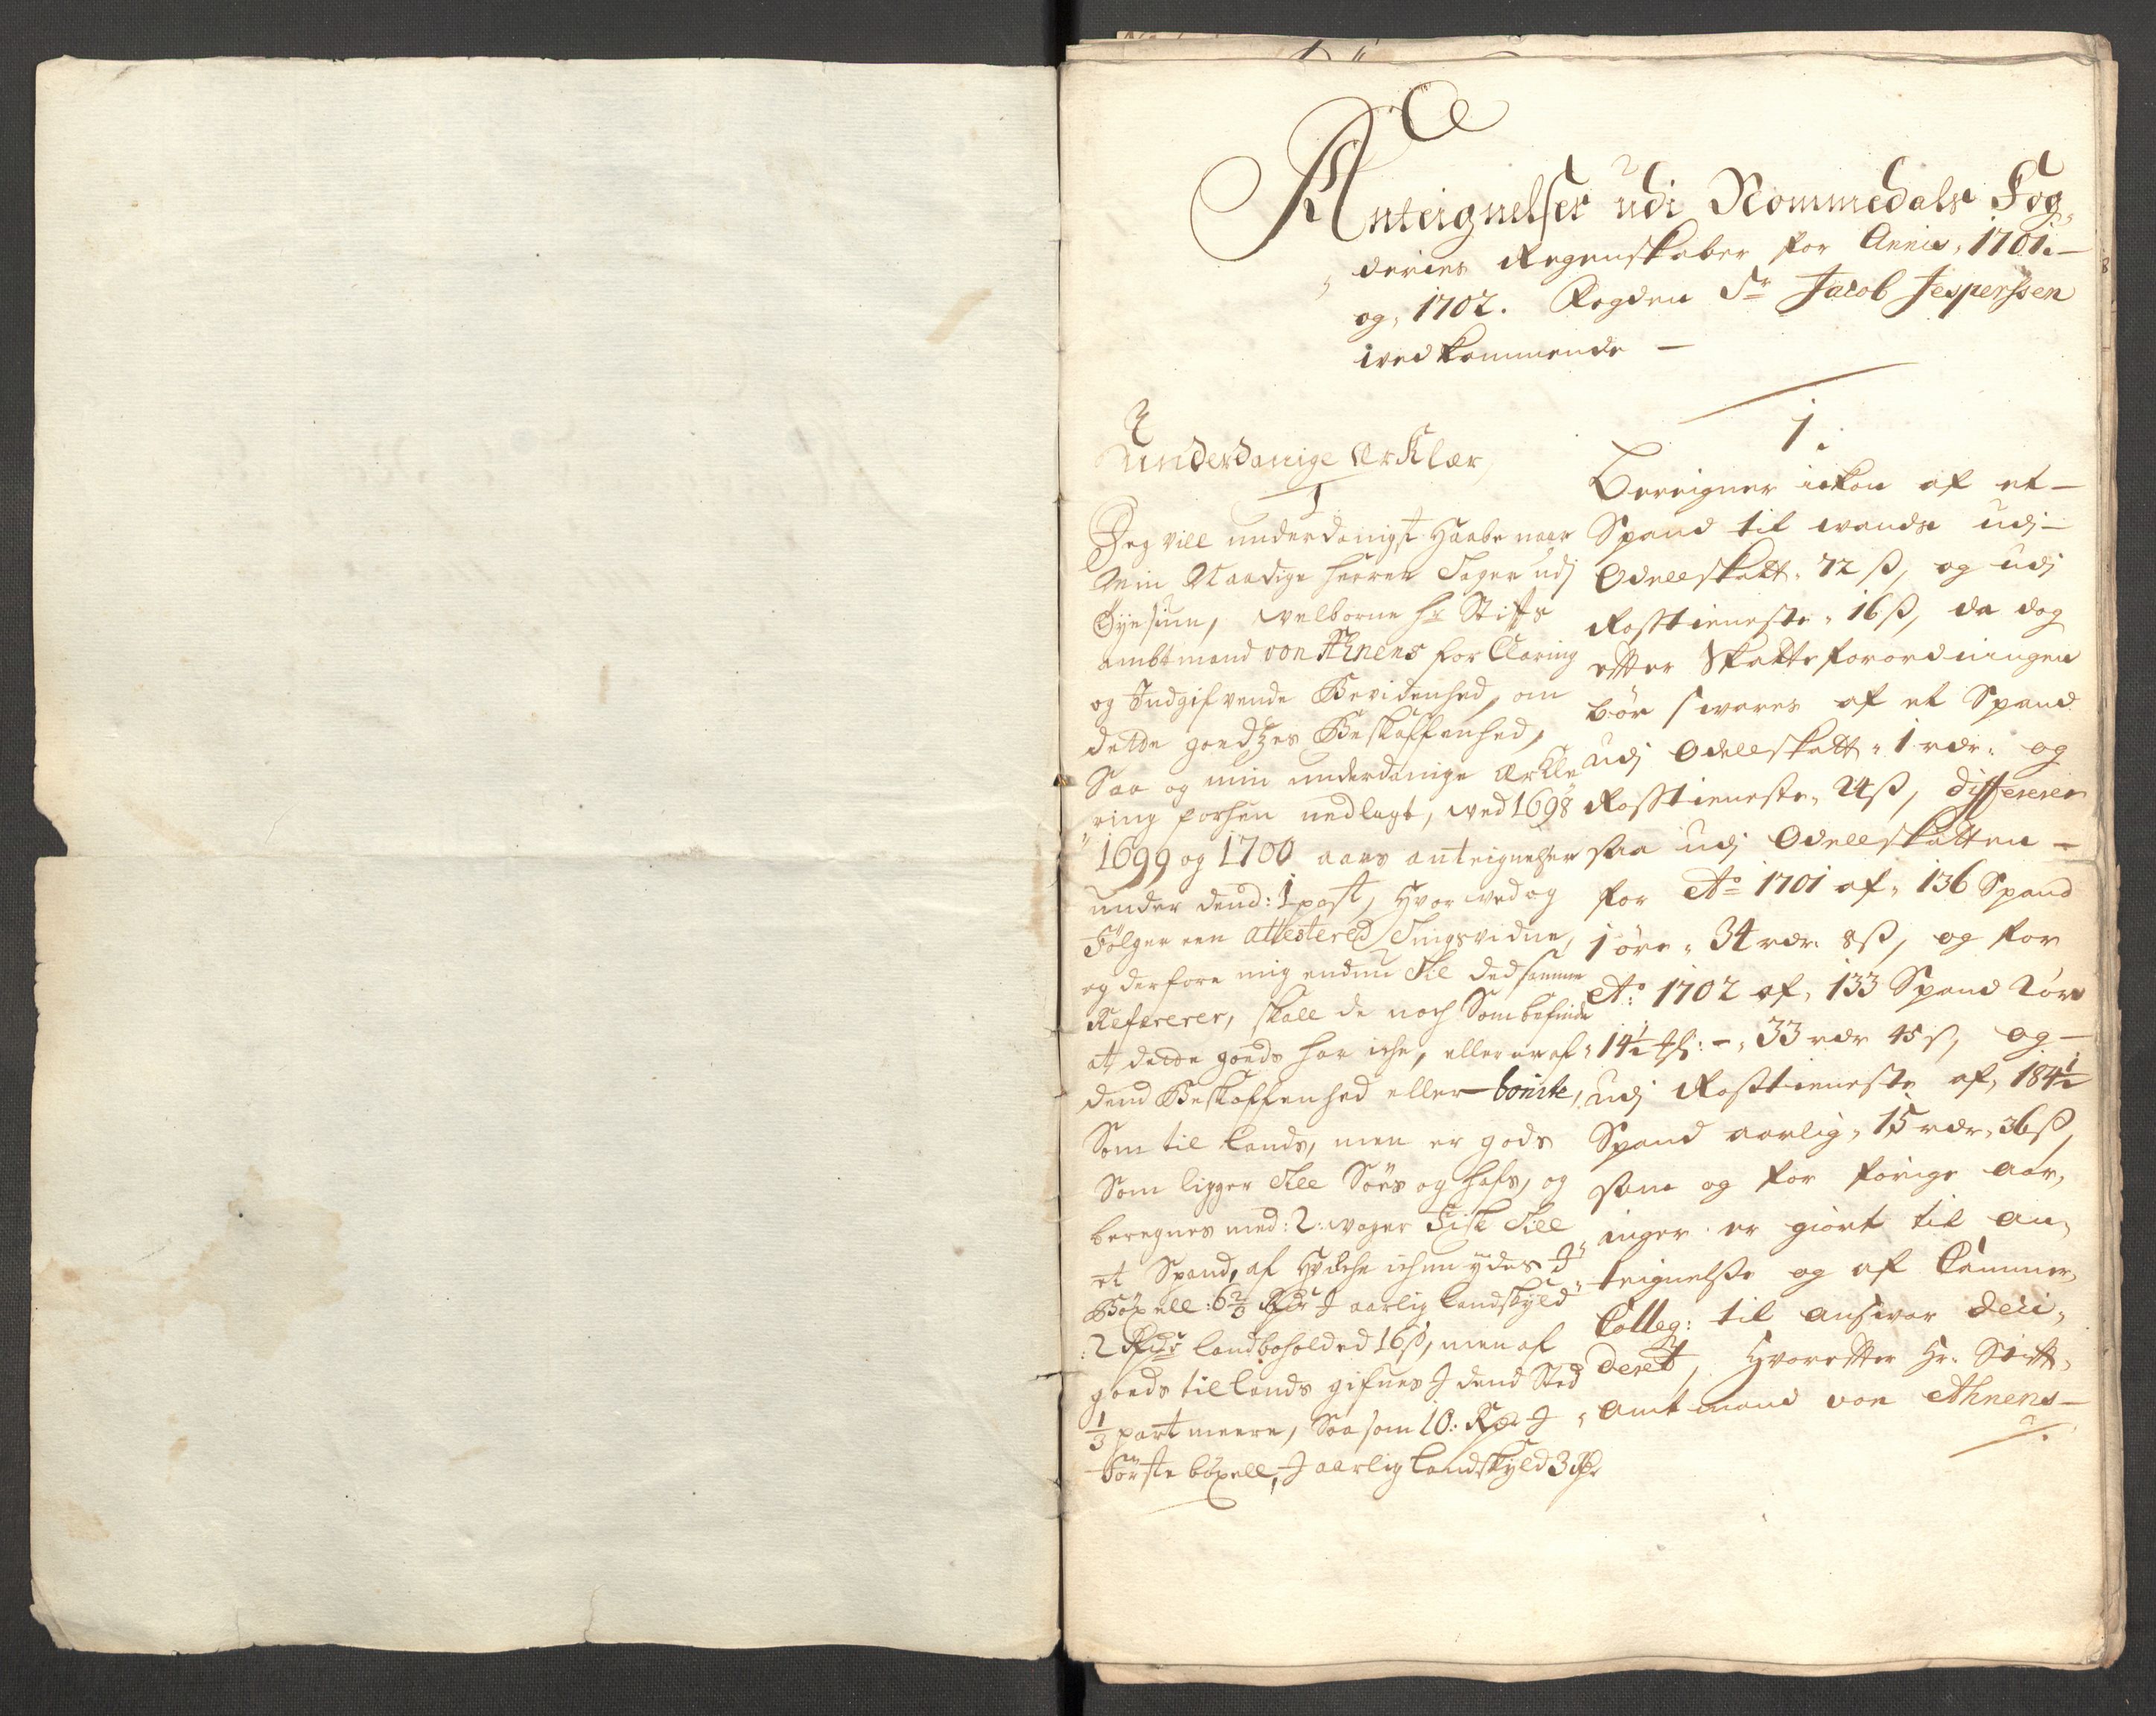 Anteignelser udi Nommedals Fog-
deries Regenskaber for Annis 1701.
og 1702. Fogden Sr Jacob Jesperssen
wedkommende
Underdanige Erklær
1
Jeg vill underdanigst Haabe naar
Min Naadige herrer Tager udj
Øyesiun, welborne hr Stifts
ambtmand von Ahnens forklaring
og Indgifvende Bevidenhed, om
dette goedtzes Beskaffenhed,
Saa og min underdanige Erkle
ring forhen nedlagt, ved 1698
1699 og 1700 aars anteignelser
under dend: 1 post, Hvor ved og
Følger een attestered Tingsvidne,
og derfore mig endnu Til ded samme
Refererer, skall de noch Som befinde
at dette goeds har iche, eller er af
dend Beskaffenhed eller bonite,
Som til Lands, men er gods
Som ligger Till Søes og hafs, og
beregnes med: 2: woger Fisk Till
et Spand, af Hvilche ichun ydes J
Böxell: 6 2/3 Rdr J aarlig Landskyld
2 Rdr landbohold ed 16 ß, men af
goeds til lands gifues J dend Sted
1/3 part meere, Saa som 10: Rdr J
Förste böxell, J aarlig Landskyld 3 Rdr
1.
Bereigner ickon af et
Spand til wands udj
Odellskatt 72 ß, og udj
Rosstieneste 16 ß, da dog
efter Skatteforordningen
bør swares af et Spand
udj Odellskatt 1 rdr. og
Rosstieneste 24 ß, differerer
saa udj Odellskatten
for Ao 1701 af 136 Spand
1 øre 34 rdr. 8 ß, og for
Ao: 1702 af 133 Spand 2 öre
14 1/2 : 33 rdr 45 ß, og
udj Rosstieneste af 184 1/2
Spand aarlig 15 rdr. 36 ß,
som og for forige aar,
inger er giort til an-
teignelse og af Cammer
Colleg: til answar deci-
deret, Hvorefter Hr. Stift-
amtmand von Ahnens